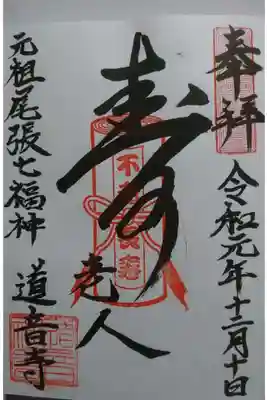 奉拝
令和元年十二月十日
寿老人
元祖尾張七福神 道音寺